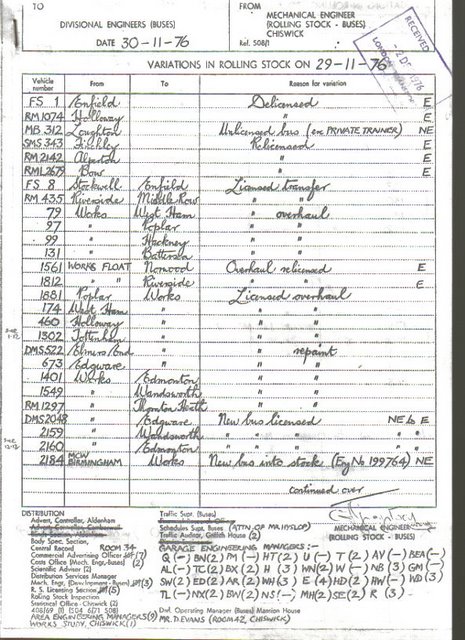 TO
DIVISIONAL ENGINEERS (BUSES)
DATE 30-11-76
FROM
MECHANICAL ENGINEER
(ROLLING STOCK - BUSES)
CHISWICK
Ref. 508/1
RECEIVED
2 DEC 1976
VARIATIONS IN ROLLING STOCK ON 29-11-76
Vehicle number From To Reason for variation
FS 1 Enfield Delicensed E
RM 1074 Holloway " E
MB 312 Loughton Unlicensed bus (ex PRIVATE TRAINER) NE
SMS 343 Finchley Relicensed E
RM 2142 Alperton " E
RML 2679 Bow " E
FS 8 Stockwell Enfield Licensed transfer
RM 435 Riverside Middle Row " "
79 Works West Ham " overhaul
97 " Poplar " "
99 " Hackney " "
131 " Battersea " "
1561 WORKS FLOAT Norwood Overhaul relicensed E
1812 " " Riverside " " E
1881 Poplar Works Licensed overhaul
174 West Ham " " "
460 Holloway " " "
1302 Tottenham " " "
DMS 522 Elmers End " " repaint
673 Edgware " " "
1401 Works Edmonton " "
1549 " Wandsworth " "
RM 1297 " Thornton Heath " "
DMS 2048 " Edgware New bus licensed NE to E
2159 " Wandsworth " " " " "
2160 " Edmonton " " " " "
2184 MCW BIRMINGHAM Works New bus into stock (Eng No 199764) NE
continued over
MECHANICAL ENGINEER
(ROLLING STOCK - BUSES)
DISTRIBUTION
Advert. Controller, Aldenham
Body Spec. Section,
Central Record ROOM 34
Commercial Advertising Officer (7)
Costs Office (Mech. Engr.-Buses) (2)
Scientific Adviser (2)
Distribution Services Manager
Mech. Engr. (Development - Buses) (3)
R. S. Licensing Section (5)
Rolling Stock Inspection
Statistical Office - Chiswick (2)
AREA ENGINEERING MANAGERS (9)
WORKS STUDY, CHISWICK (1)
Traffic Supt. (Buses)
Schedules Supt. (Buses) (ATTN. OF MR HYSLOP)
Traffic Auditor, Griffith House (2)
GARAGE ENGINEERING MANAGERS :-
Divl. Operating Manager (Buses) Marrion House
MR D. EVANS (ROOM 42, CHISWICK)